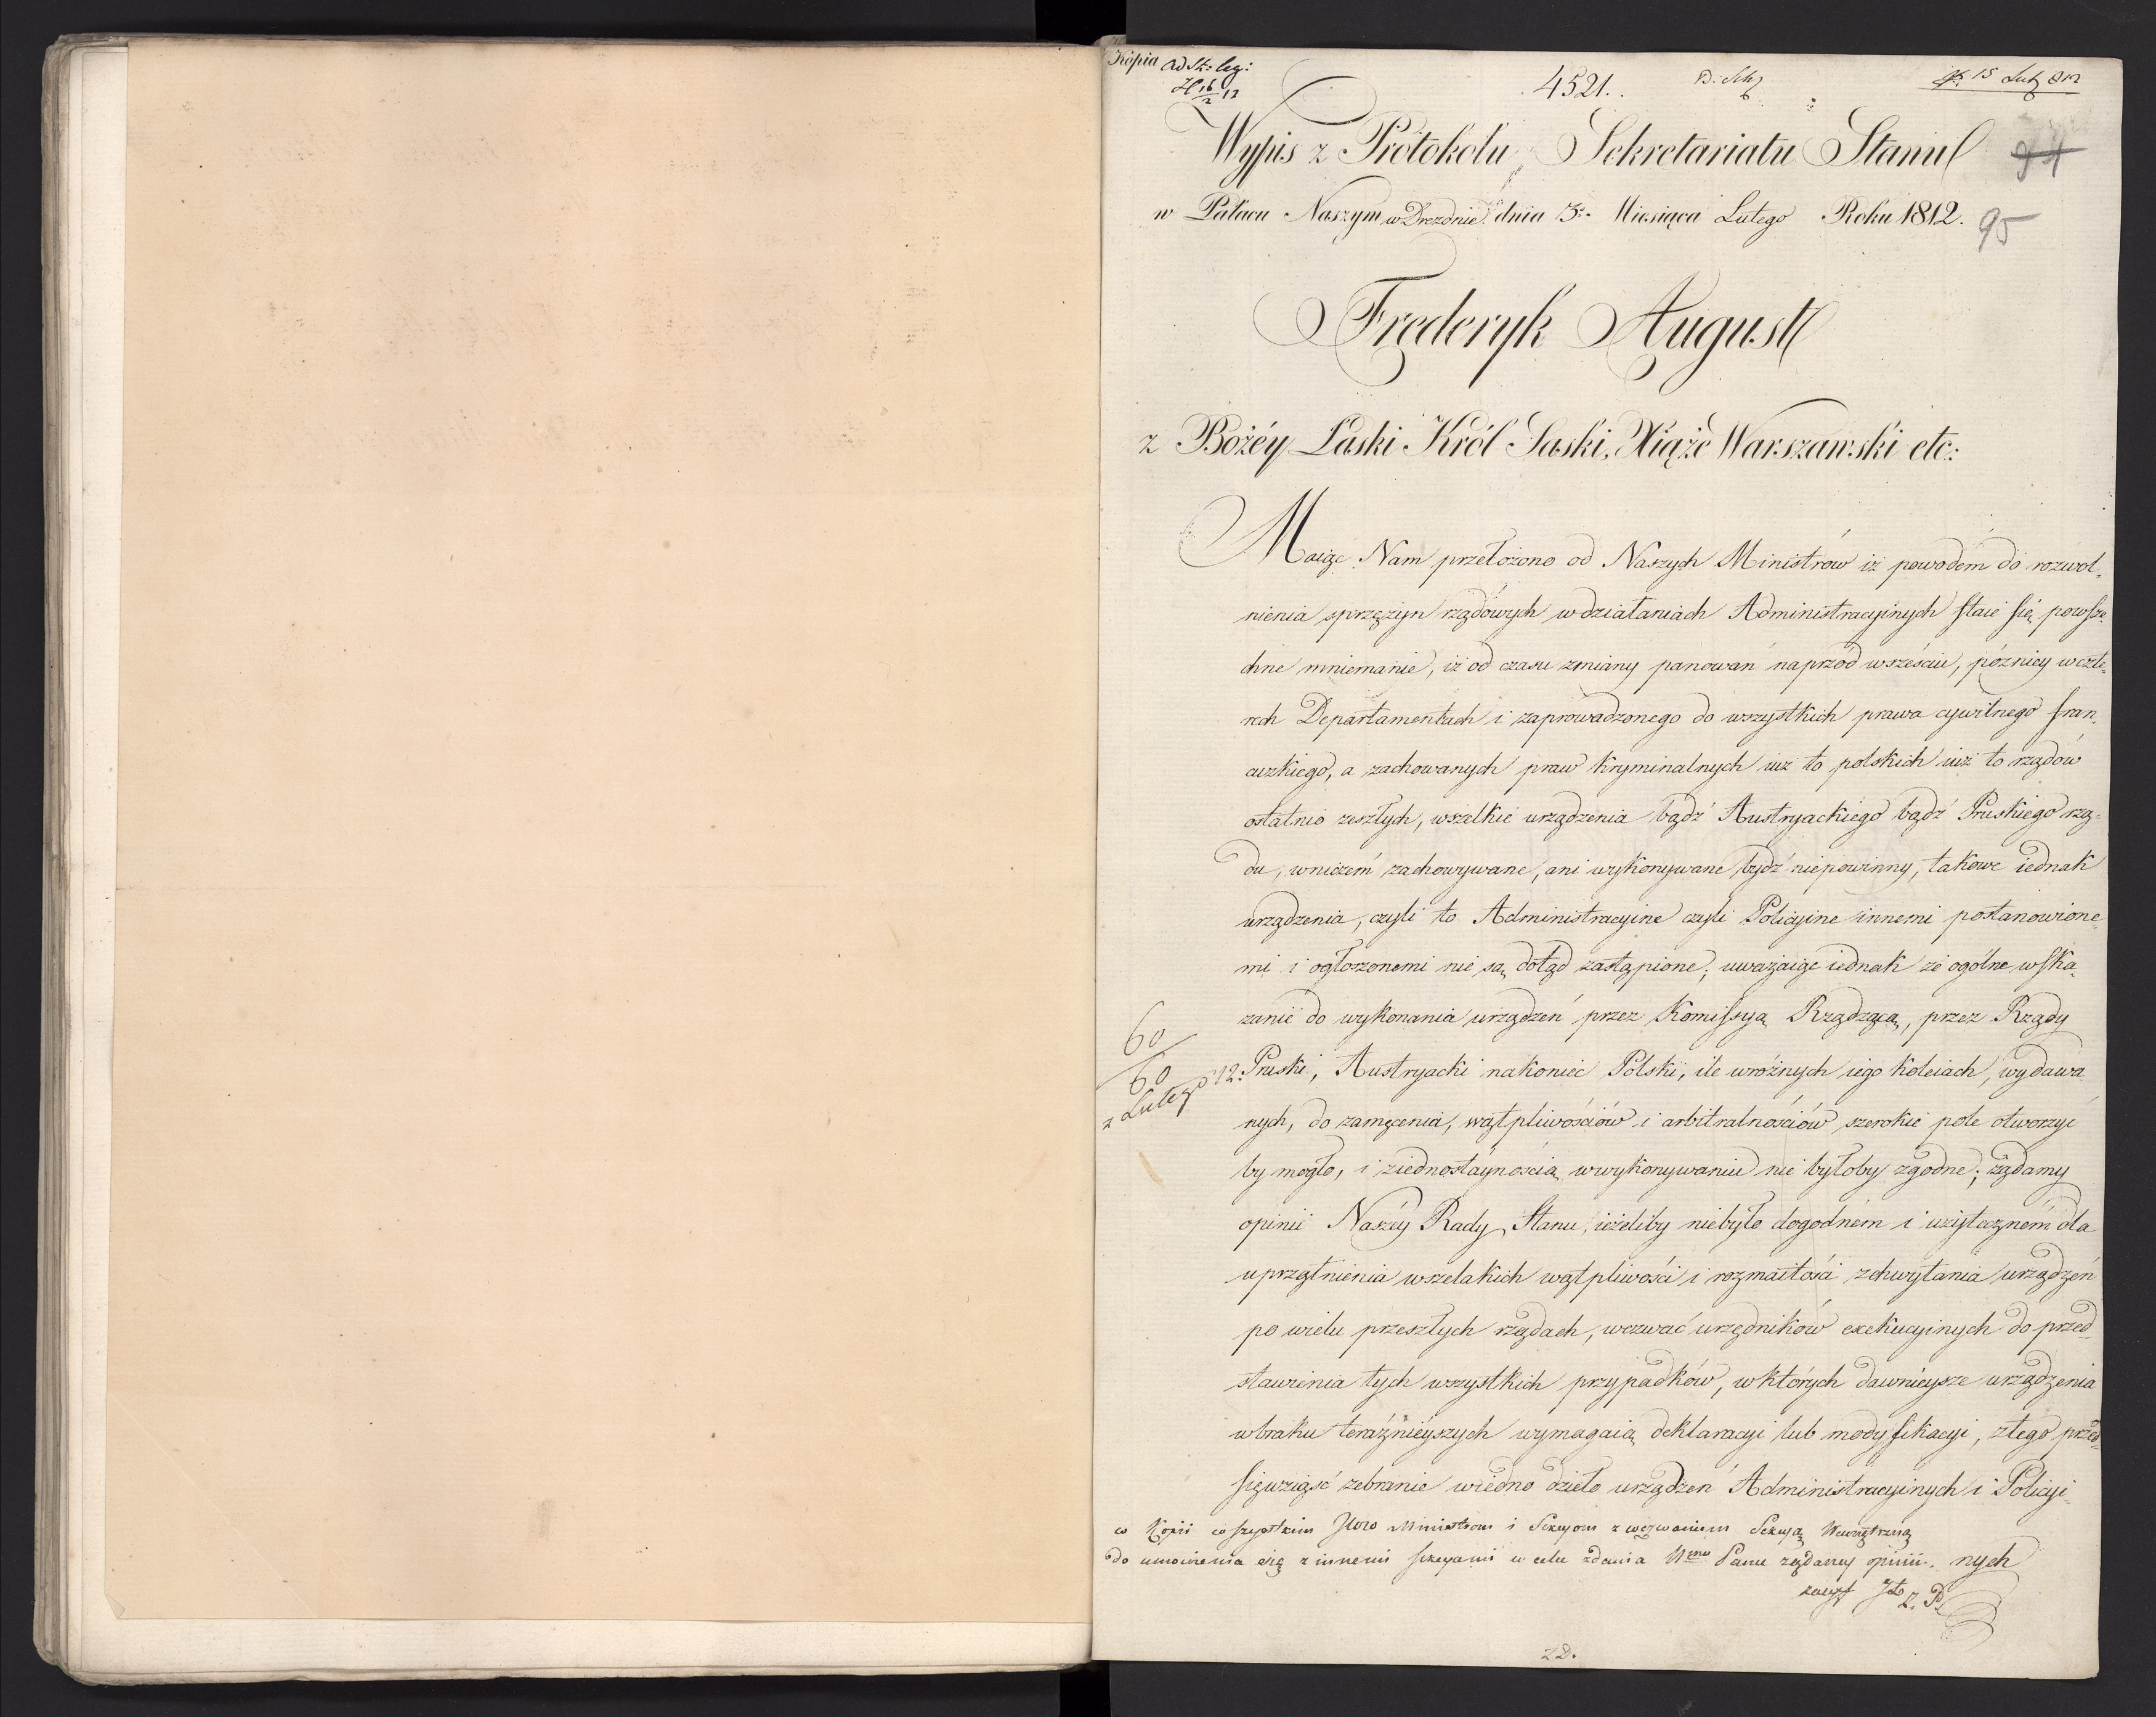 Kopia ad St: leg:
16/2 12
4521.
15 Lut 812
Wypis z Protokołu Sekretariatu Stanu
94
w Pałacu Naszym w Dreznie dnia 3. Miesiąca Lutego Roku 1812.
95
Frederyk August
z Bożéy Łaski Król Saski, Xiąże Warszawski etc:
Maiąc Nam przełożono od Naszych Ministrów iż powodem do rozwol-
nienia sprzężyn rządowych w działaniach Administracyinych staie się powsze-
chne mniemanie, iż od czasu zmiany panowań naprzód w sześciu, pózniey w czte-
rech Departamentach i zaprowadzonego do wszystkich prawa cywilnego fran-
cuzkiego, a zachowanych praw kryminalnych iuż to polskich iuż to rządów
ostatnio zeszłych, wszelkie urządzenia bądź Austryackiego bądź Pruskiego rzą-
du, w niczem zachowywane, ani wykonywane bydź niepowinny, takowe iednak
urządzenia, czyli to Administracyine czyli Policyine innemi postanowione-
mi i ogłoszonemi nie są dotąd zastąpione; uważaiąc iednak że ogólne wska-
zanie do wykonania urządzeń przez Komissyą Rządzącą, przez Rządy
60
60
z Lutego 12.
Pruski, Austryacki nakoniec Polski, ile w różnych iego koleiach, wydawa-
nych, do zamącenia, wątpliwościów i arbitralnościów szerokie pole otworzyć
by mogło, i ziednostaynością w wykonywaniu nie byłoby zgodne; żądamy
opinii Naszéy Rady Stanu, ieżeliby niebyło dogodnem i użytecznem dla
uprzątnienia wszelakich wątpliwości i rozmaitości zchwytania urządzeń
po wielu przeszłych rządach, wezwać urzędników exekucyinych do przed-
stawienia tych wszystkich przypadków, w których dawnieysze urządzenia
w braku teraźnieyszych wymagaią deklaracyi lub modyfikacyi, z tego przed-
sięwziąść zebranie w iedno dzieło urządzeń Administracyinych i Policyi-
nych
w Kopii wszystkim Ministrom i Sekcyom z wezwaniem Sekcyą Wewnętrzną
do umówienia się z innemi sekcyami w celu zdania Panu żądaney opinii.
z. P.